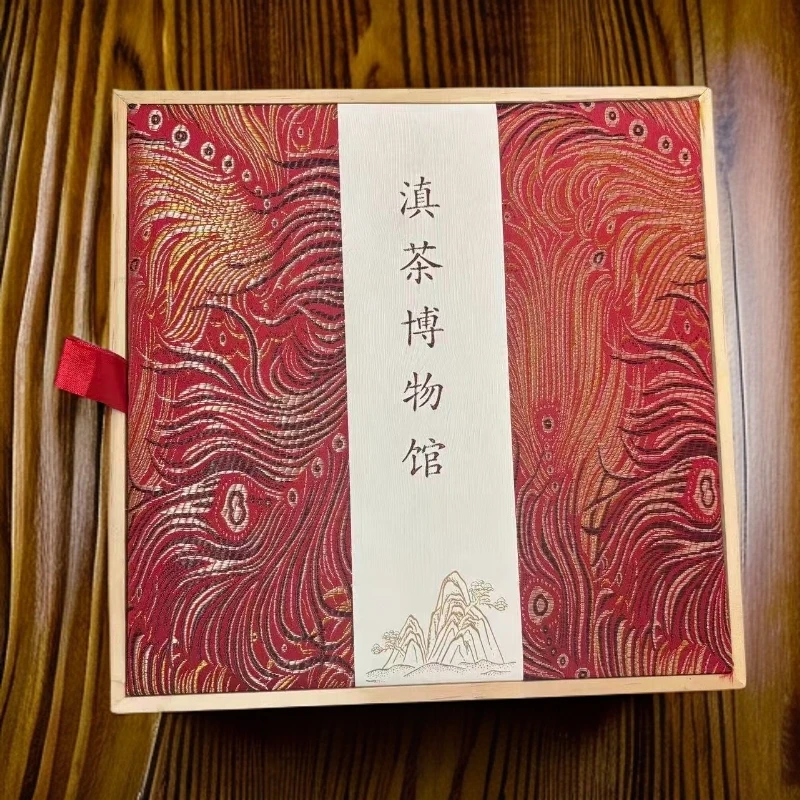 滇茶博物馆